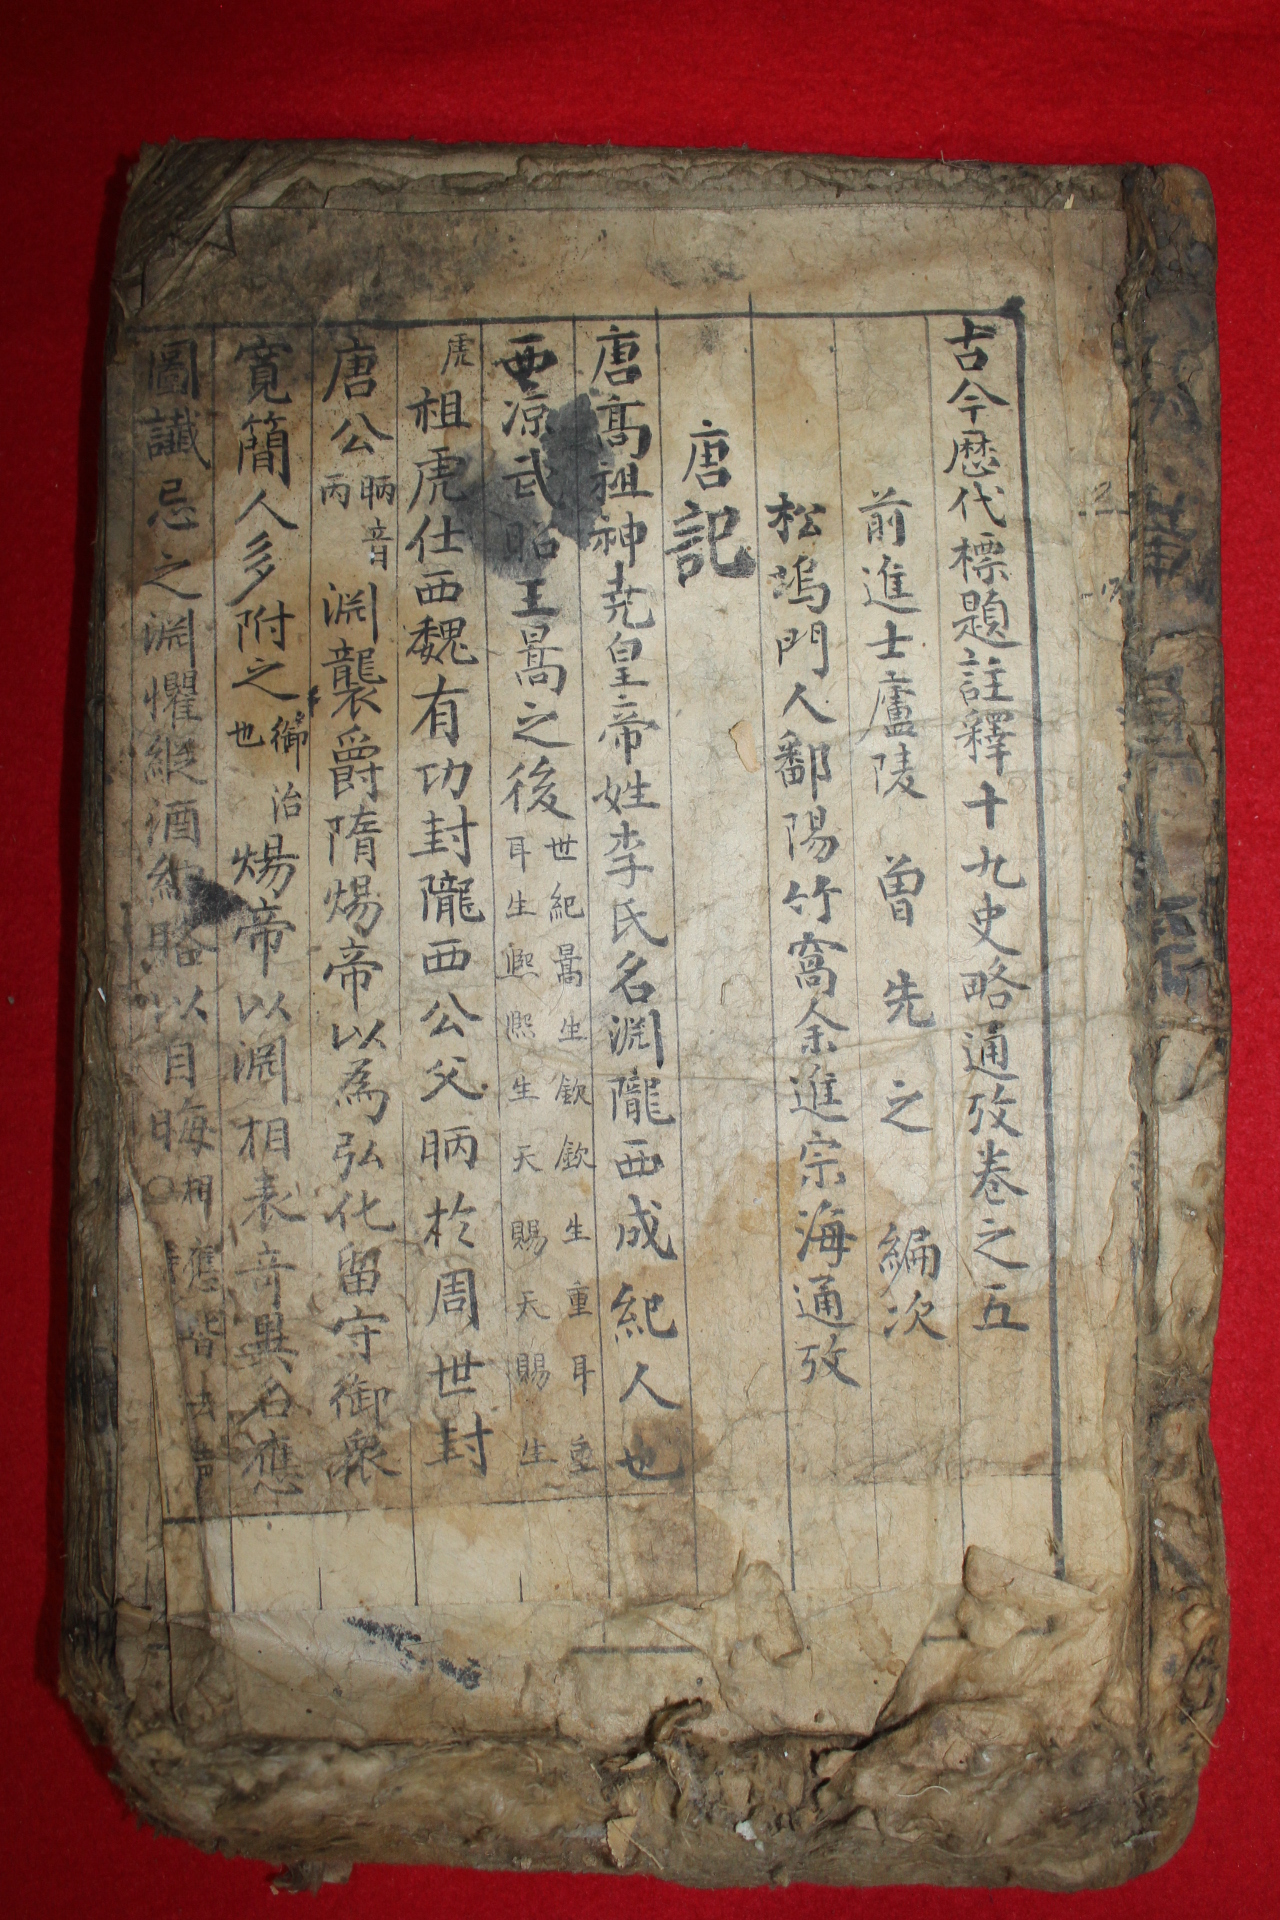 古今歷代標題註釋十九史略通攷卷之五
前進士廬陵 曾 先 之 編次
松塢門人鄱陽竹窩余進宗海通攷
唐記
唐高祖神尭皇帝姓李氏名淵隴西成紀人也
西凉武昭王暠之後世紀暠生歆歆生重耳重耳生熙熙生天賜天賜生
虎祖虎仕西魏有功封隴西公父昞於周世封
唐公昞音丙淵襲爵隋煬帝以爲弘化留守御衆
寬簡人多附之御治也煬帝以淵相表竒異名應
圖讖忌之淵懼縱酒納賂以自晦相應皆去声